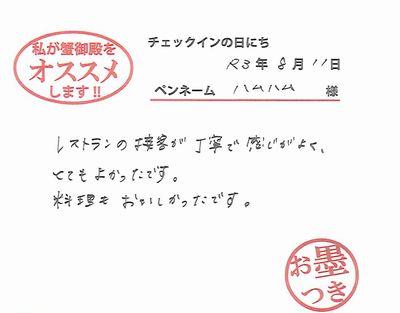 私が蟹御殿を
オススメ
します!!
チェックインの日にち
R3年8月11日
ペンネーム ハムハム 様
レストランの接客が丁寧で感じがよく、
とてもよかったです。
料理もおいしかったです。
お墨
つき